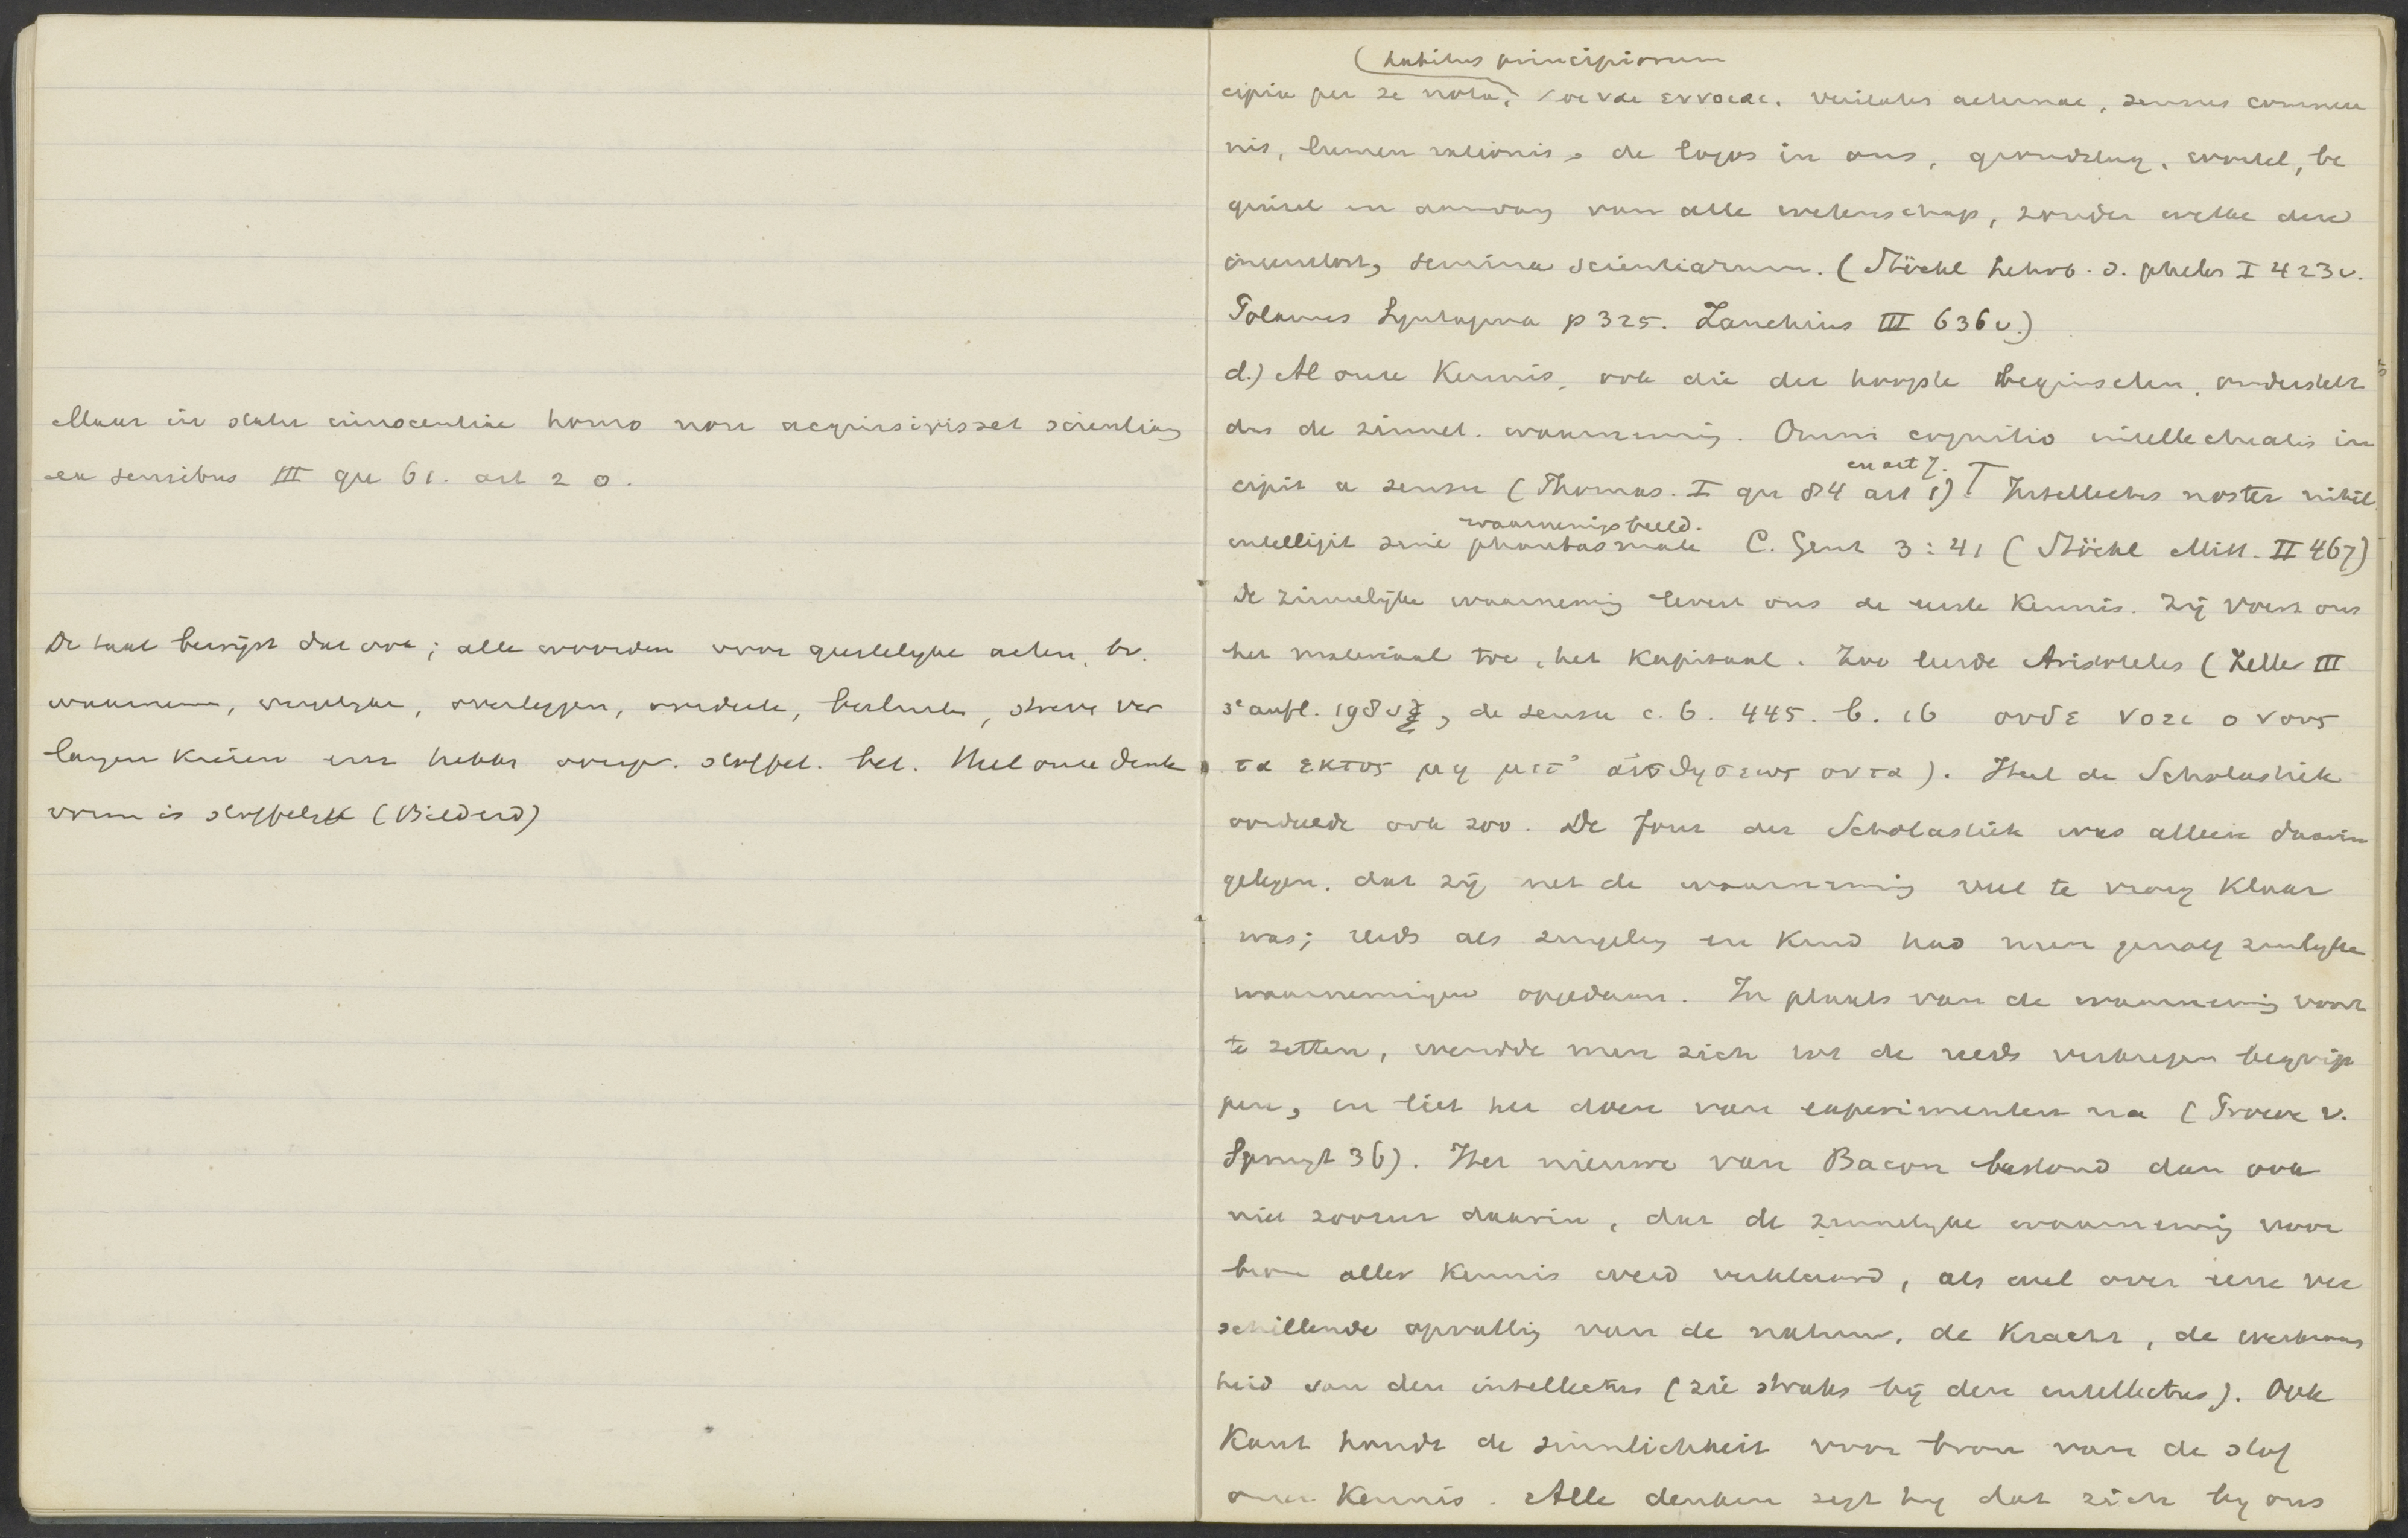 Maar in statu innocentiae homo non acquisivisset scientiam
ex sensibus III qu 61. art 2 o.
De taal bewijst dat ook; alle woorden voor geestelyke acten, bv.
waarnemen, overleggen, oordeele, besluite, streve ver
langen kiezen enz hebbe oorspr. stoffel. bet. Heel onze denk
vorm is stoffelyk (Bilderd)
(habitus principiorum
cipia per se nota, κοιναι εννοιαι. veritates aeternae, sensus commu
nis, lumen rationis, de logos in ons, grondslag, wortel, be
ginsel en aanvang van alle wetenschap, zonder welke deze
ineenstort, semina scientiarum. (Stöckl Lehrb. d. philos I 423v.
Polanus Syntagma p 325. Zanchius III 636v.)
d.) Al onze Kennis, ook die der hoogste beginselen, onderstelt
dus de zinnel. waarneming. Omni cognitio intellectualis in
en art 7.
cipit a sensu (Thomas. I qu 84 art 1). Intellectus noster nihil
waarnemingsbeeld.
intelligit sine phantasmate C. Gent 3:41 (Stöckl Mitt. II 467)
De zinnelijke waarneming levert ons de eerste Kennis. Zij voert ons
het materiaal toe, het Kapitaal. Zoo leerde Aristoteles (Zeller III
3e aufl. 198v, de sensu c. 6. 445. b. 16 ουδε νοει ο νους
τα εκτος μη μετ' αισθησεως οντα). Heel de Scholastiek
oordeelde ook zoo. De fout der Scholastiek was alleen daarin
gelegen, dat zij met de waarneming veel te vroeg Klaar
was; reeds als zuigeling en Kind had men genoeg zinlyke
waarnemingen opgedaan. In plaats van de waarneming voort
te zetten, wendde men zich tot de reeds verkregen begrip
pen, en liet het doen van experimenten na (Proeve v.
Spruyt 36). Het nieuwe van Bacon bestond dan ook
niet zoozeer daarin, dat de zinnelyke waarneming voor
bron aller Kennis werd verklaard, als wel over eene ver
schillende opvatting van de natuur, de Kracht, de werkzaam
heid van den intellectus (zie straks bij den intellectus). Ook
Kant houdt de sinnlichkeit voor bron van de stof
onzer Kennis. Alle denken zegt hy dat zich by ons